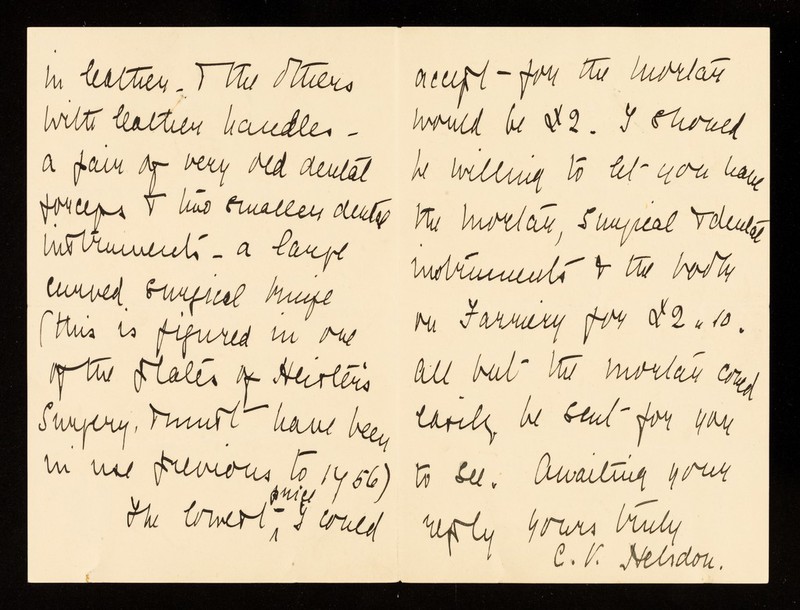 in leather - & the others
with leather handles -
a pair of very old dental
forceps & two smaller dental
instruments - a large
curved surgical knife
(this is figured in one
of the plates of Heister's
Surgery, & must have been
in use previous to 1756)
The lowest ^price I could
accept - for the mortar
would be £2. I should
be willing to let you have
the mortar, surgical & dental
instruments & the books
on Farriery for £2 " 10.
all but the mortar could
easily be sent for you
to see. Awaiting your
reply yours truly
C. V. Helsdon.